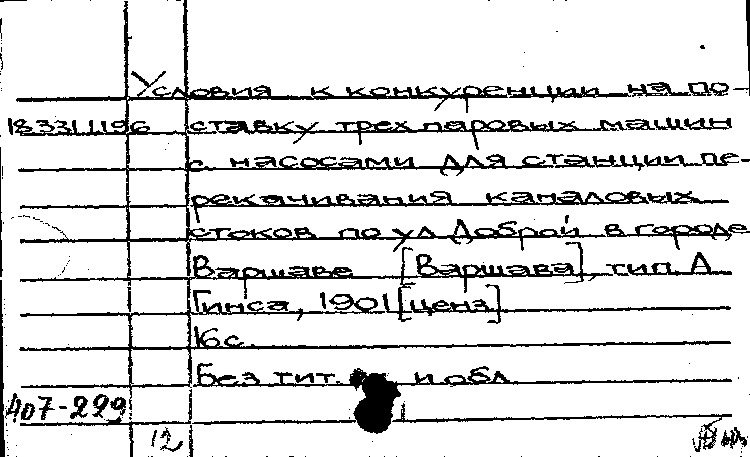 Условия к конкуренции на по-
18331196 ставку трех паровых машин
с насосами для станции пе-
рекачивания каналовых
стоков по ул Доброй в городе
Варшаве [Варшава], тип. А
Гинса, 1901 [ценз]
16с.
Без тит. и обл
407-229
12